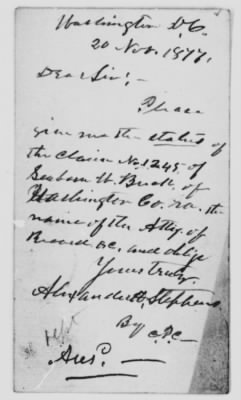 Washington D.C.
20 Nov. 1877.
Dear Sir:-
Please
give me the status of
the claim No. 1249 of
H. Buck, of
Washington Co. the
name of the Atty. of
Record &c. and oblige
Yours truly,
Alexander H. Stephens
By
Ansd.